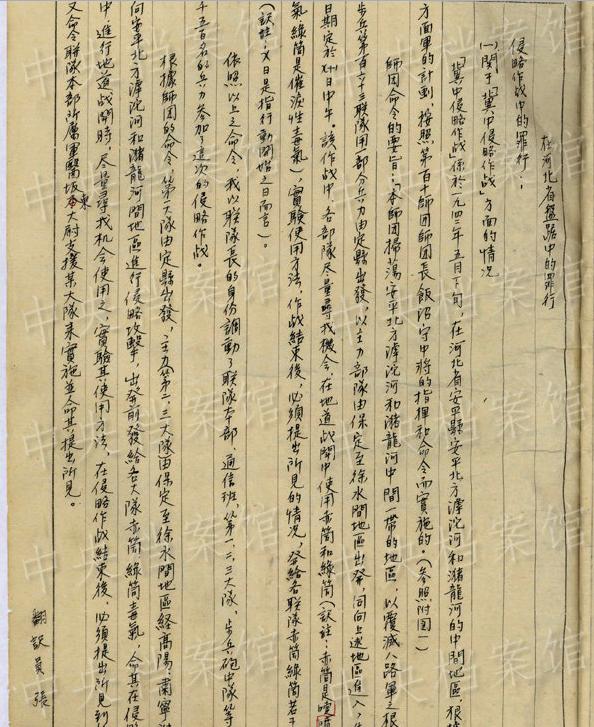 在河北省盤踞中的罪行
侵略作战中的罪行：
(一)関于「冀中侵略作战」方面的情况
「冀中侵略作战」係於一九四二年五月下旬，在河北省安平縣安平北方滹沱河和瀦龍河的中間地區，根据
方面軍的計劃，按照第百十師团師团長飯沼守中將的指揮和命令而實施的。(参照附図一)
師团命令的要旨：「本師团掃蕩安平北方滹沱河和瀦龍河中間一带的地區，以覆滅八路軍之根
步兵第百六十三联隊用部分兵力由定縣出發，以主力部隊由保定至徐水間地區出発，同向上述地區進入，
日期定於X日中午。該作战中，各部隊尽量尋找機会，在地道战鬪中使用赤筒和綠筒(訳註：赤筒是
氣綠筒是催淚性毒氣)，實験使用方法，作战結束後，必須提出所見的情况，発給各联隊赤筒綠筒若干
(訳註：X日是指行動開始之日而言)。
依照以上之命令，我以联隊長的身份調動了联隊本部、通信班、第一、二、三大隊、步兵砲中隊等
千五百名的兵力參加了這次的侵略作战。
根據師团的命令，第一大隊由定縣出發，主力第二、三大隊由保定至徐水間地區経高陽、肅寧
向安平北方滹沱河和瀦龍河間地區進行侵略攻擊，出発前發給各大隊赤筒、綠筒毒氣，命其在侵
中，進行地道战鬪時，尽量尋找机会使用之，實驗其使用方法，在侵略作战結束後，必須提出所見
又命令联隊本部所属軍醫坂東大尉支援某大隊来實施並命其提出所見。
翻訳員 張
中央档案馆